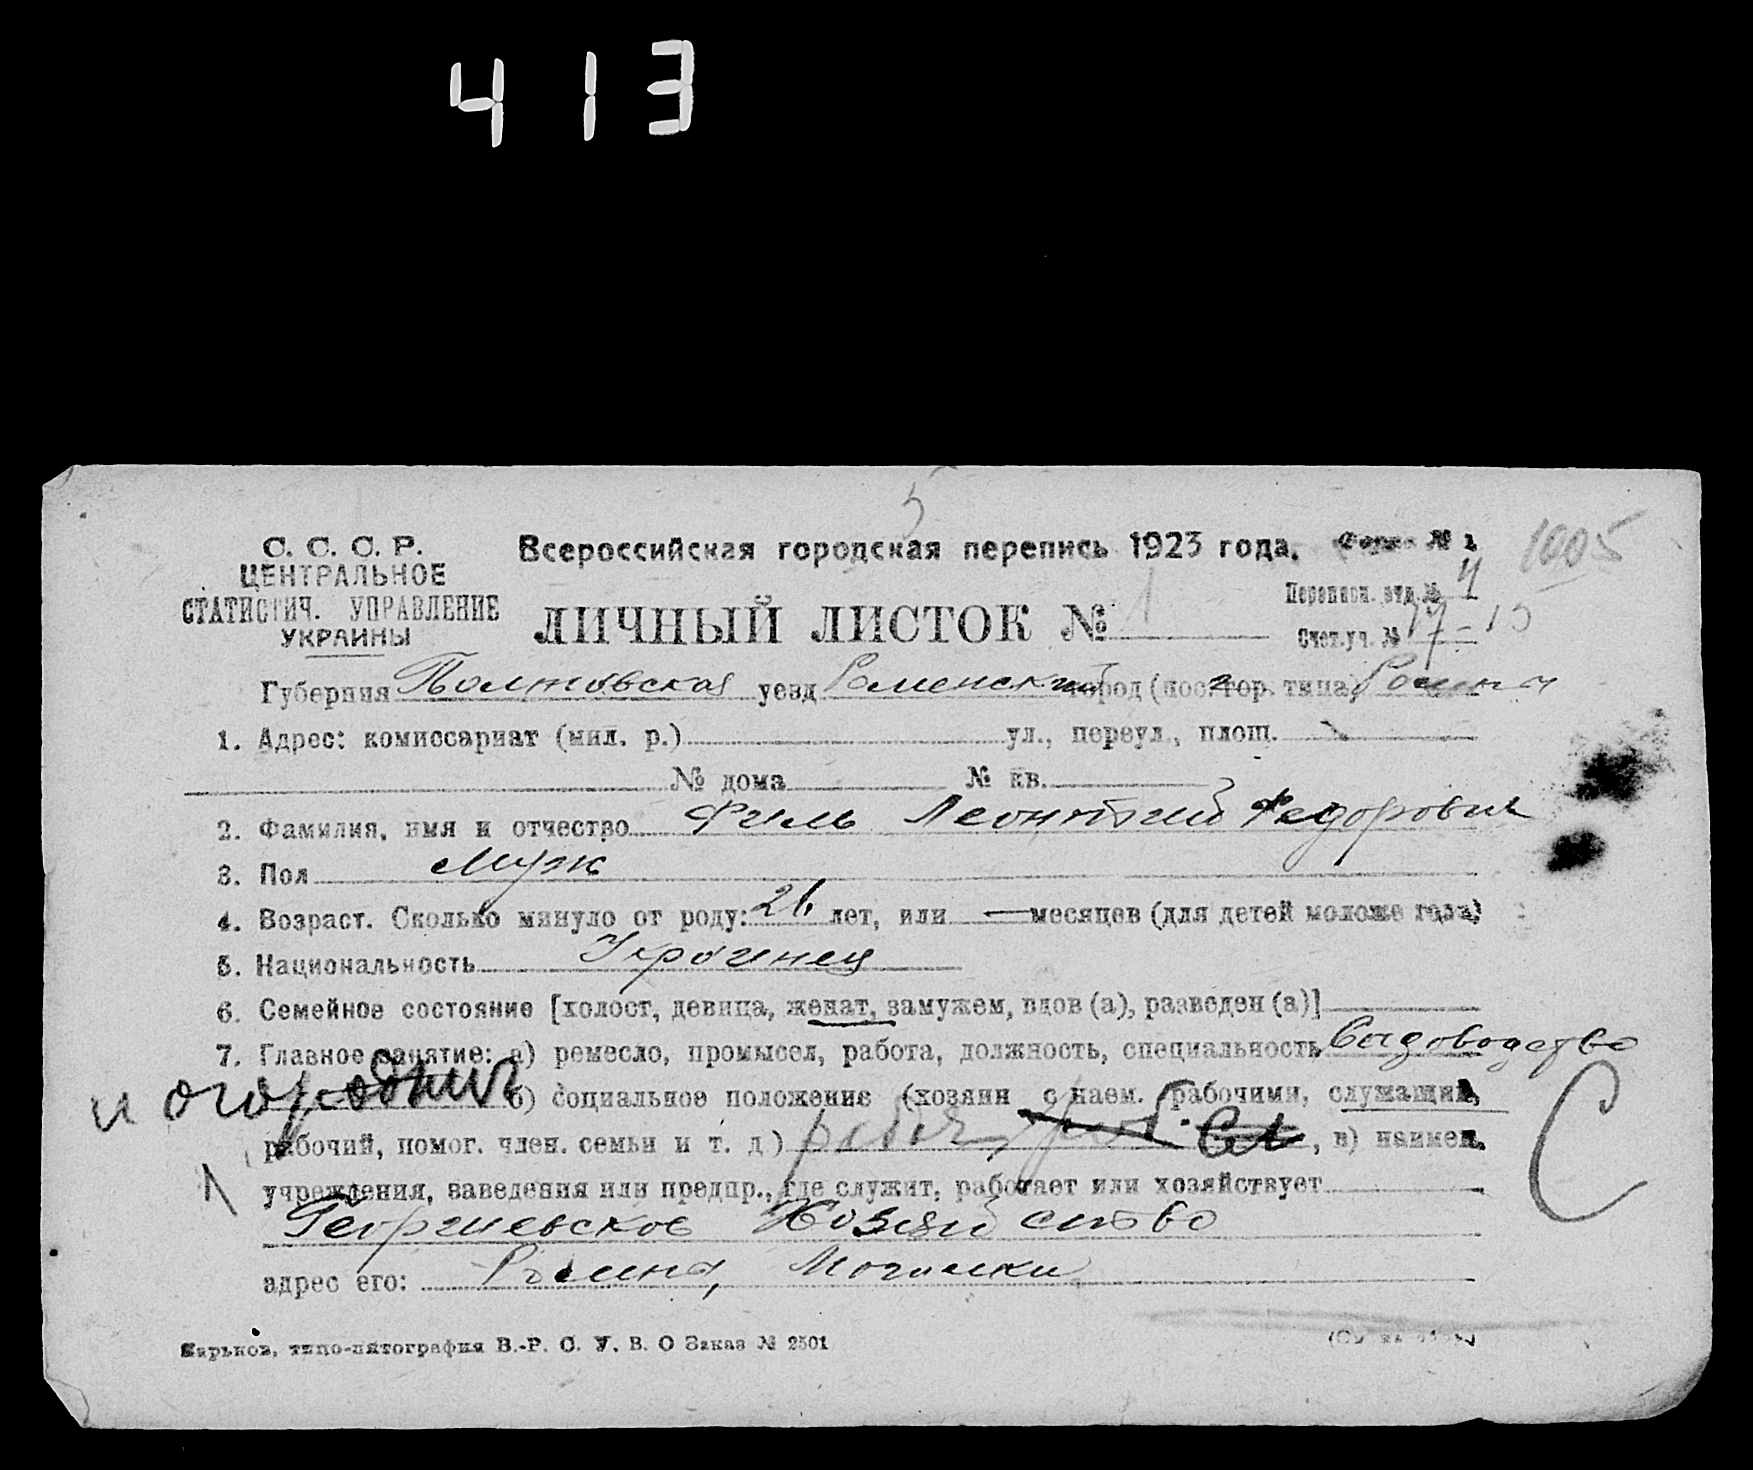 413
5
С. С. С. Р.
ЦЕНТРАЛЬНОЕ
СТАТИСТИЧ. УПРАВЛЕНИЕ
УКРАИНЫ
Всероссийская городская перепись 1923 года.
Форма № 1
1005
ЛИЧНЫЙ ЛИСТОК № 1
Переписн. отд. № 4
Счет. уч. №
Губерния Полтовская уезд Роменский город (пос. гор. типа) Ромны
1. Адрес: комиссариат (мил. р.) ул., переул., площ.
№ дома № кв.
2. Фамилия, имя и отчество Филь Леонтий Федорович
3. Пол Муж
4. Возраст. Сколько минуло от роду: 26 лет, или — месяцев (для детей моложе года)
5. Национальность Украинец
6. Семейное состояние [холост, девица, женат, замужем, вдов (а), разведен (а)]
7. Главное занятие: а) ремесло, промысел, работа, должность, специальность Садоводство
и огородник б) социальное положение (хозяин с наем. рабочими, служащий,
рабочий, помог. член. семьи и т. д.) , в) наимен.
учреждения, заведения или предпр., где служит, работает или хозяйствует
С
Георгиевское Хозяйство
адрес его: Ромны,
Харьков, типо-литография В.-Р. С. У. В. О Заказ № 2501